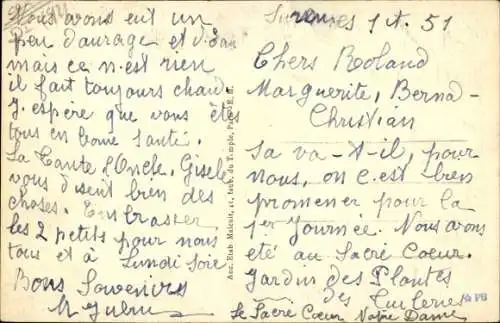 Suresnes 1 A. 51
Chers Roland
Marguerite, Berna-
Christian
Sa va-t-il, pour
nous, on c'est bien
promener pour la
1er Journée. Nous avons
eté au Sacré Coeur.
Jardin des Plantes
des Tuileries
le Sacré Coeur Notre Dame
Nous avons eut un
peu d'aurage et d'eau
mais ce n'est rien
il fait toujours chaud
J'espère que vous êtes
tous en bonne santé.
La Tante l'Oncle, Gisele
vous disent bien des
choses. Embrasser
les 2 petits pour nous
tous et à Lundi soir
Bons Souvenirs
Anc. Etab. Malcuit, 41, faub. du Temple, Paris